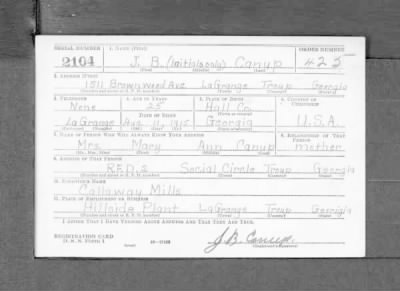 SERIAL NUMBER 1. NAME (Print) ORDER NUMBER
2104 J. B. (initials only) Canup 425
(First) (Middle) (Last)
2. ADDRESS (Print)
1511 Brownwood Ave LaGrange Troup Georgia
3. TELEPHONE 4. AGE IN YEARS 5. PLACE OF BIRTH 6. COUNTRY OF CITIZENSHIP
None 25 Hall Co.
DATE OF BIRTH
LaGrange Aug. 11, 1915 Georgia U.S.A.
7. NAME OF PERSON WHO WILL ALWAYS KNOW YOUR ADDRESS 8. RELATIONSHIP OF THAT PERSON
Mrs. Mary Ann Canup mother
9. ADDRESS OF THAT PERSON
R.F.D. 2 Social Circle Troup Georgia
10. EMPLOYER'S NAME
Callaway Mills
11. PLACE OF EMPLOYMENT OR BUSINESS
Hillside Plant LaGrange Troup Georgia
I AFFIRM THAT I HAVE VERIFIED ABOVE ANSWERS AND THAT THEY ARE TRUE.
REGISTRATION CARD
D. S. S. FORM 1
(over)
J. B. Canup